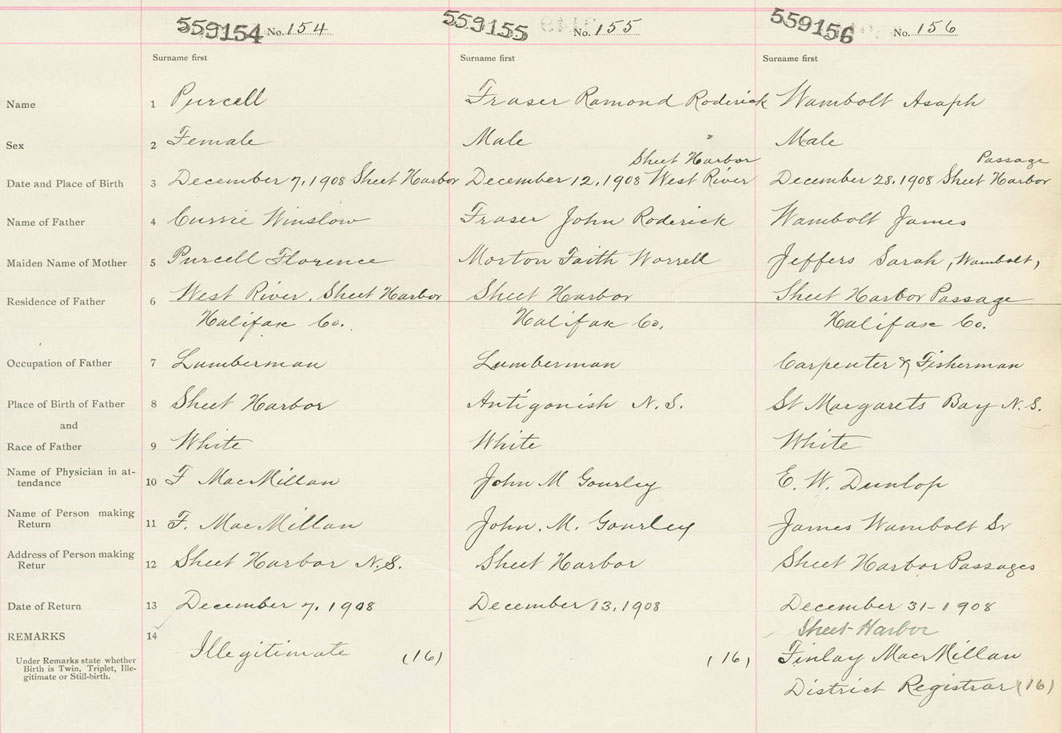 559154 No. 154 559155 No. 155 559156 No. 156
Surname first Surname first Surname first
Name 1 Purcell Fraser Ramond Roderick Wambolt Asaph
Sex 2 Female Male Male
Sheet Harbor Passage
Date and Place of Birth 3 December 7, 1908 Sheet Harbor December 12, 1908 West River December 28, 1908 Sheet Harbor
Name of Father 4 Currie Winslow Fraser John Roderick Wambolt James
Maiden Name of Mother 5 Purcell Florence Morton Faith Worrell Jeffers Sarah, Wambolt,
Residence of Father 6 West River, Sheet Harbor Sheet Harbor Sheet Harbor Passage
Halifax Co. Halifax Co. Halifax Co.
Occupation of Father 7 Lumberman Lumberman Carpenter & Fisherman
Place of Birth of Father 8 Sheet Harbor Antigonish N.S. St Margarets Bay N.S.
and
Race of Father 9 White White White
Name of Physician in at-
tendance 10 F MacMillan John M Gourley E. W. Dunlop
Name of Person making
Return 11 F. MacMillan John. M. Gourley James Wambolt Sr
Address of Person making
Retur 12 Sheet Harbor N.S. Sheet Harbor Sheet Harbor Passages
Date of Return 13 December 7, 1908 December 13, 1908 December 31-1908
REMARKS 14 Sheet Harbor
Under Remarks state whether
Birth is Twin, Triplet, Ille-
gitimate or Still-birth.
Illegitimate (16) (16) Finlay MacMillan
District Registrar (16)